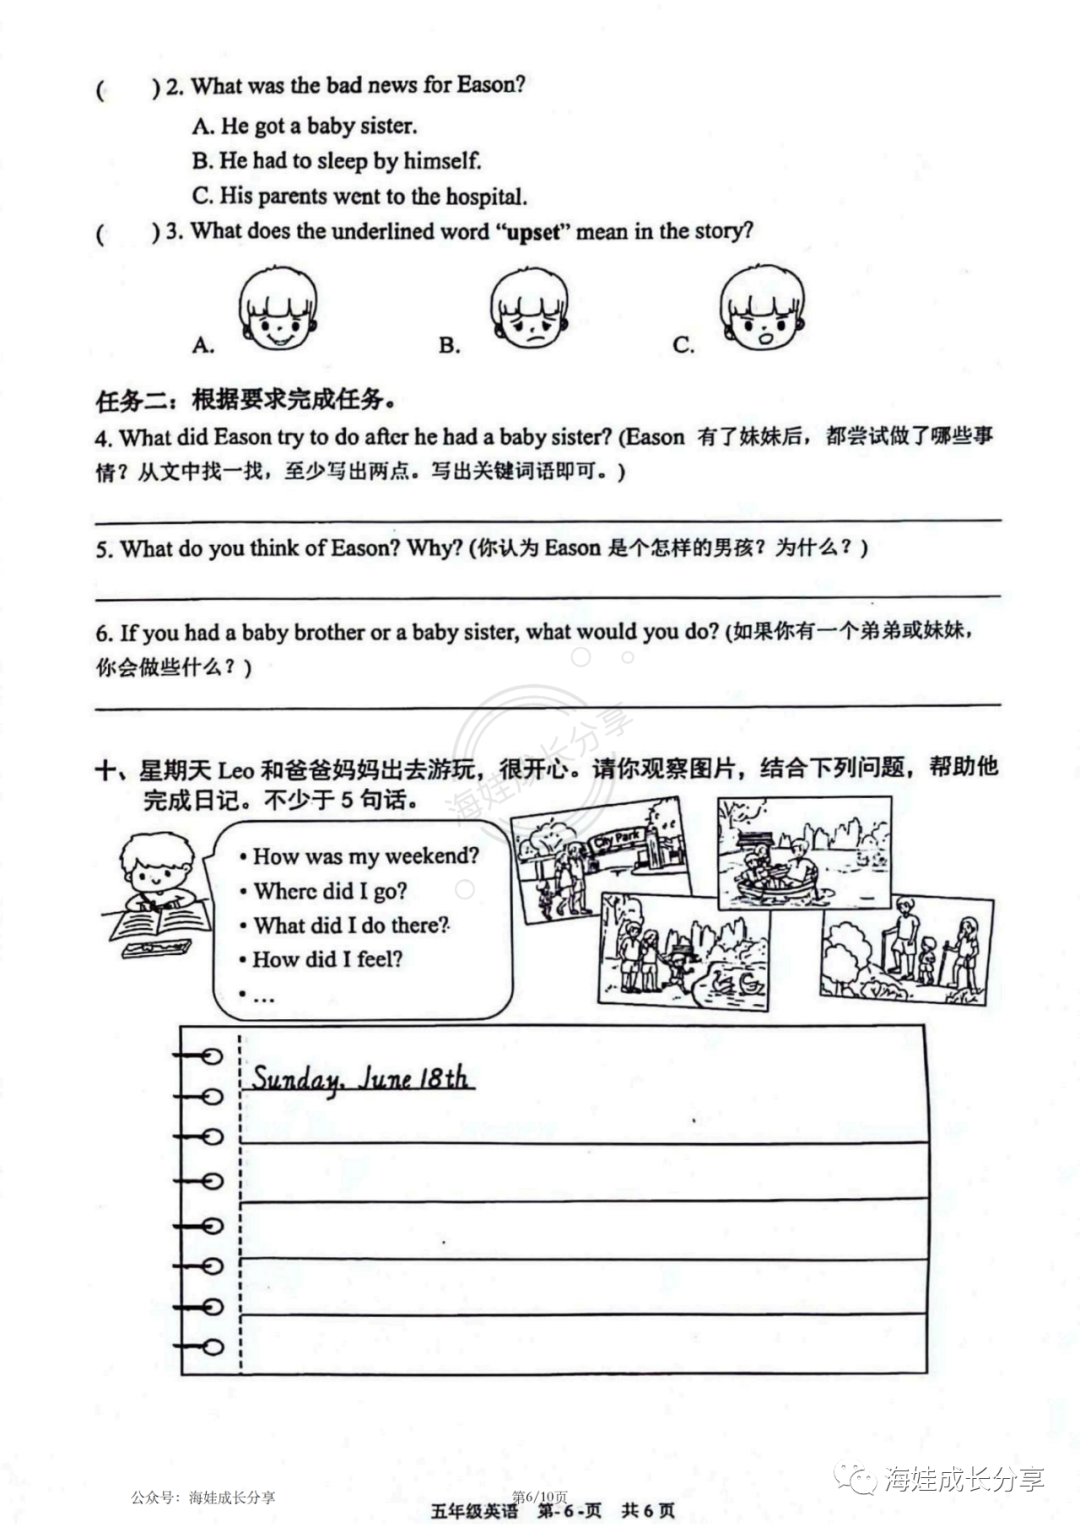 (    ) 2. What was the bad news for Eason?
A. He got a baby sister.
B. He had to sleep by himself.
C. His parents went to the hospital.
(    ) 3. What does the underlined word “upset” mean in the story?
A.
B.
C.
任务二：根据要求完成任务。
4. What did Eason try to do after he had a baby sister? (Eason 有了妹妹后，都尝试做了哪些事
情？从文中找一找，至少写出两点。写出关键词语即可。)
5. What do you think of Eason? Why? (你认为 Eason 是个怎样的男孩？为什么？)
6. If you had a baby brother or a baby sister, what would you do? (如果你有一个弟弟或妹妹，
你会做些什么？)
海娃成长分享
十、星期天 Leo 和爸爸妈妈出去游玩，很开心。请你观察图片，结合下列问题，帮助他
完成日记。不少于 5 句话。
• How was my weekend?
• Where did I go?
• What did I do there?
• How did I feel?
• ...
City Park
Sunday, June 18th
海娃成长分享
公众号：海娃成长分享
第6/10页
五年级英语 第-6-页 共6页